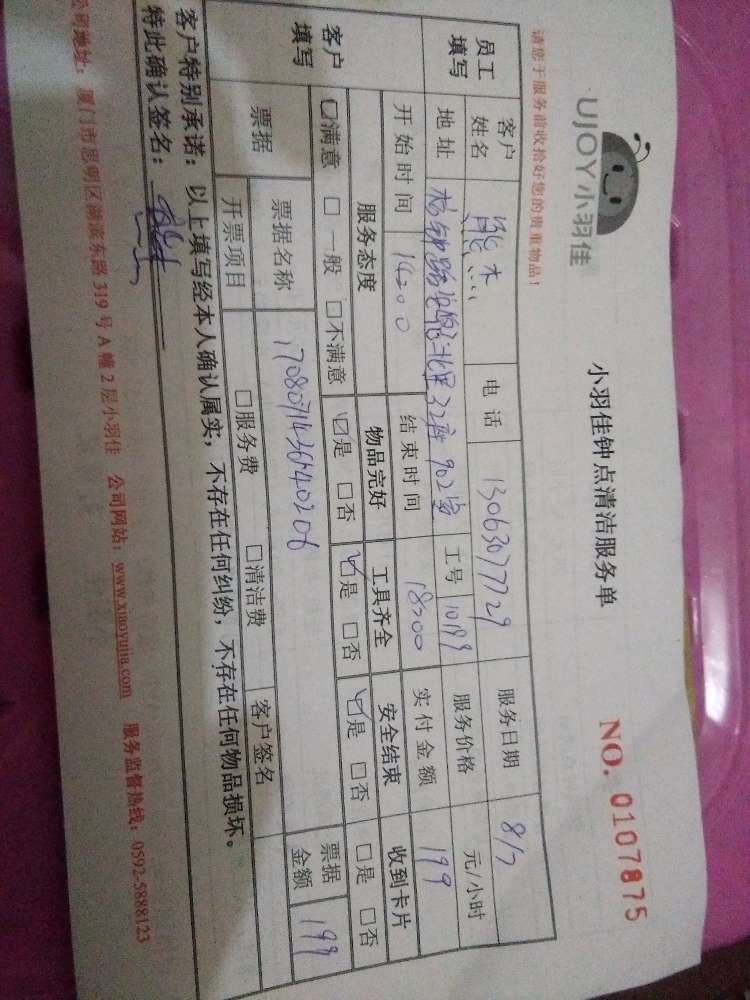 UJOY小羽佳
小羽佳钟点清洁服务单
NO. 0107875
请您于服务前收拾好您的贵重物品！
员工填写
客户姓名 熊杰 电话 13063077729 服务日期 8/7
地址 北里32座902室 工号 10199 服务价格 元/小时
开始时间 14:00 结束时间 18:00 实付金额 199
客户填写
服务态度 物品完好 工具齐全 安全结束 收到卡片
☑满意 □一般 □不满意 ☑是 □否 ☑是 □否 ☑是 □否 □是 □否
票据 票据名称 票据金额 199
开票项目 □服务费 □清洁费 客户签名
客户特别承诺：以上填写经本人确认属实，不存在任何纠纷，不存在任何物品损坏。
特此确认签名：
公司地址：厦门市思明区湖滨东路319号A幢2层小羽佳 公司网站：www.xiaoyujia.com 服务监督热线：0592-5888123